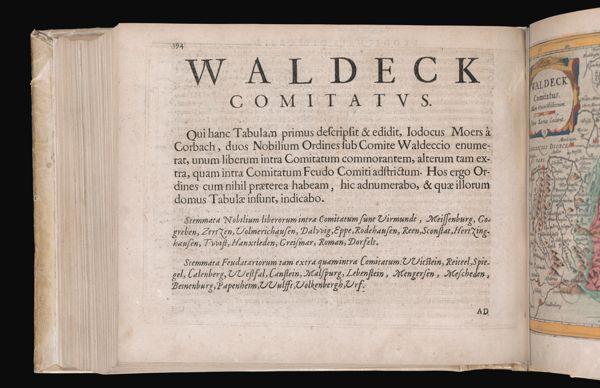 194
WALDECK
COMITATVS.
Qui hanc Tabulam primus descripsit & edidit, Iodocus Moers à
Corbach, duos Nobilium Ordines sub Comite Waldeccio enume-
rat, unum liberum intra Comitatum commorantem, alterum tam ex-
tra, quam intra Comitatum Feudo Comiti adstrictum. Hos ergo Or-
dines cum nihil præterea habeam, hic adnumerabo, & quæ illorum
domus Tabulæ insunt, indicabo.
Stemmata Nobilium liberorum intra Comitatum sunt Virmundt, Meissenburg, Co-
greben, Zertzen, Volmerichausen, Dalvvig, Eppe, Rodehausen, Reen, Sconstat, Hertzing-
hausen, Tvvist, Hanxtleden, Greismar, Roman, Dorfelt.
Stemmata Feudatariorum tam extra quam intra Comitatum: VVitstein, Reiteel, Spie-
gel, Calenberg, VVestfal, Canstein, Malspurg, Lebenstein, Mengersen, Mescheden,
Beinenburg, Papenheim, VVulfft, Volkenbergh, Vrf.
AD
WALDECK
Comitatus.